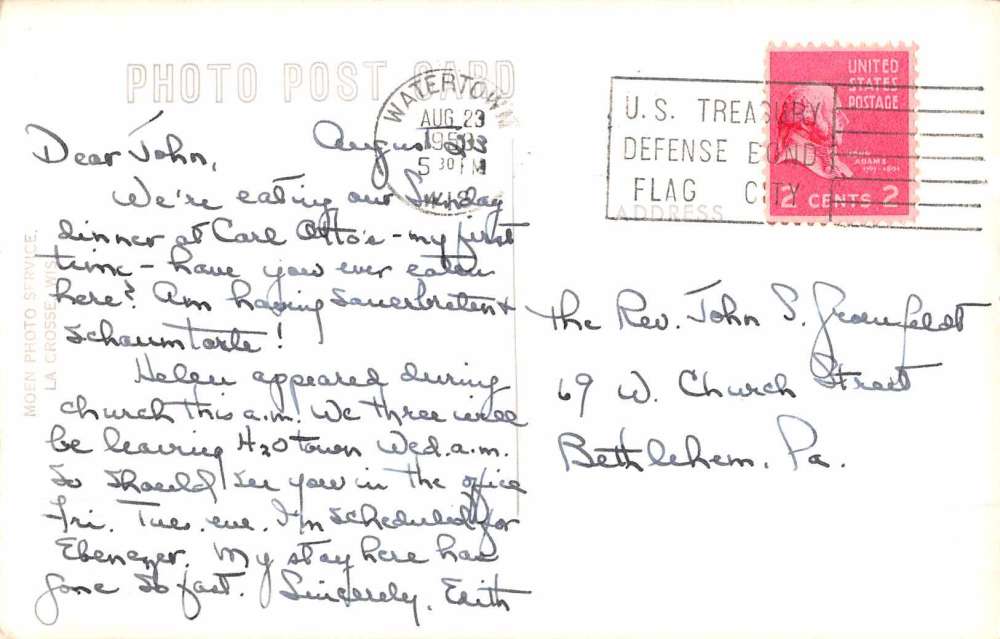 PHOTO POST CARD
WATERTOWN
AUG 23
5 30 PM
WIS
U.S. TREASURY
DEFENSE BONDS
FLAG CITY
UNITED
STATES
POSTAGE
JOHN
ADAMS
2 CENTS 2
ADDRESS
MOEN PHOTO SERVICE,
LA CROSSE, WIS.
August 23
Dear John,
We're eating our Sunday
dinner at Carl Otto's - my first
time - have you ever eaten
here? Am having Sauerbraten &
Schaumtorte!
Helen appeared during
church this a.m. We three will
be leaving H2O town Wed. a.m.
So should see you in the office
Fri. Tues. eve. I'm scheduled for
Ebenezer. My stay here has
gone so fast. Sincerely, Edith
The Rev. John S. Groenfeldt
69 W. Church Street
Bethlehem, Pa.